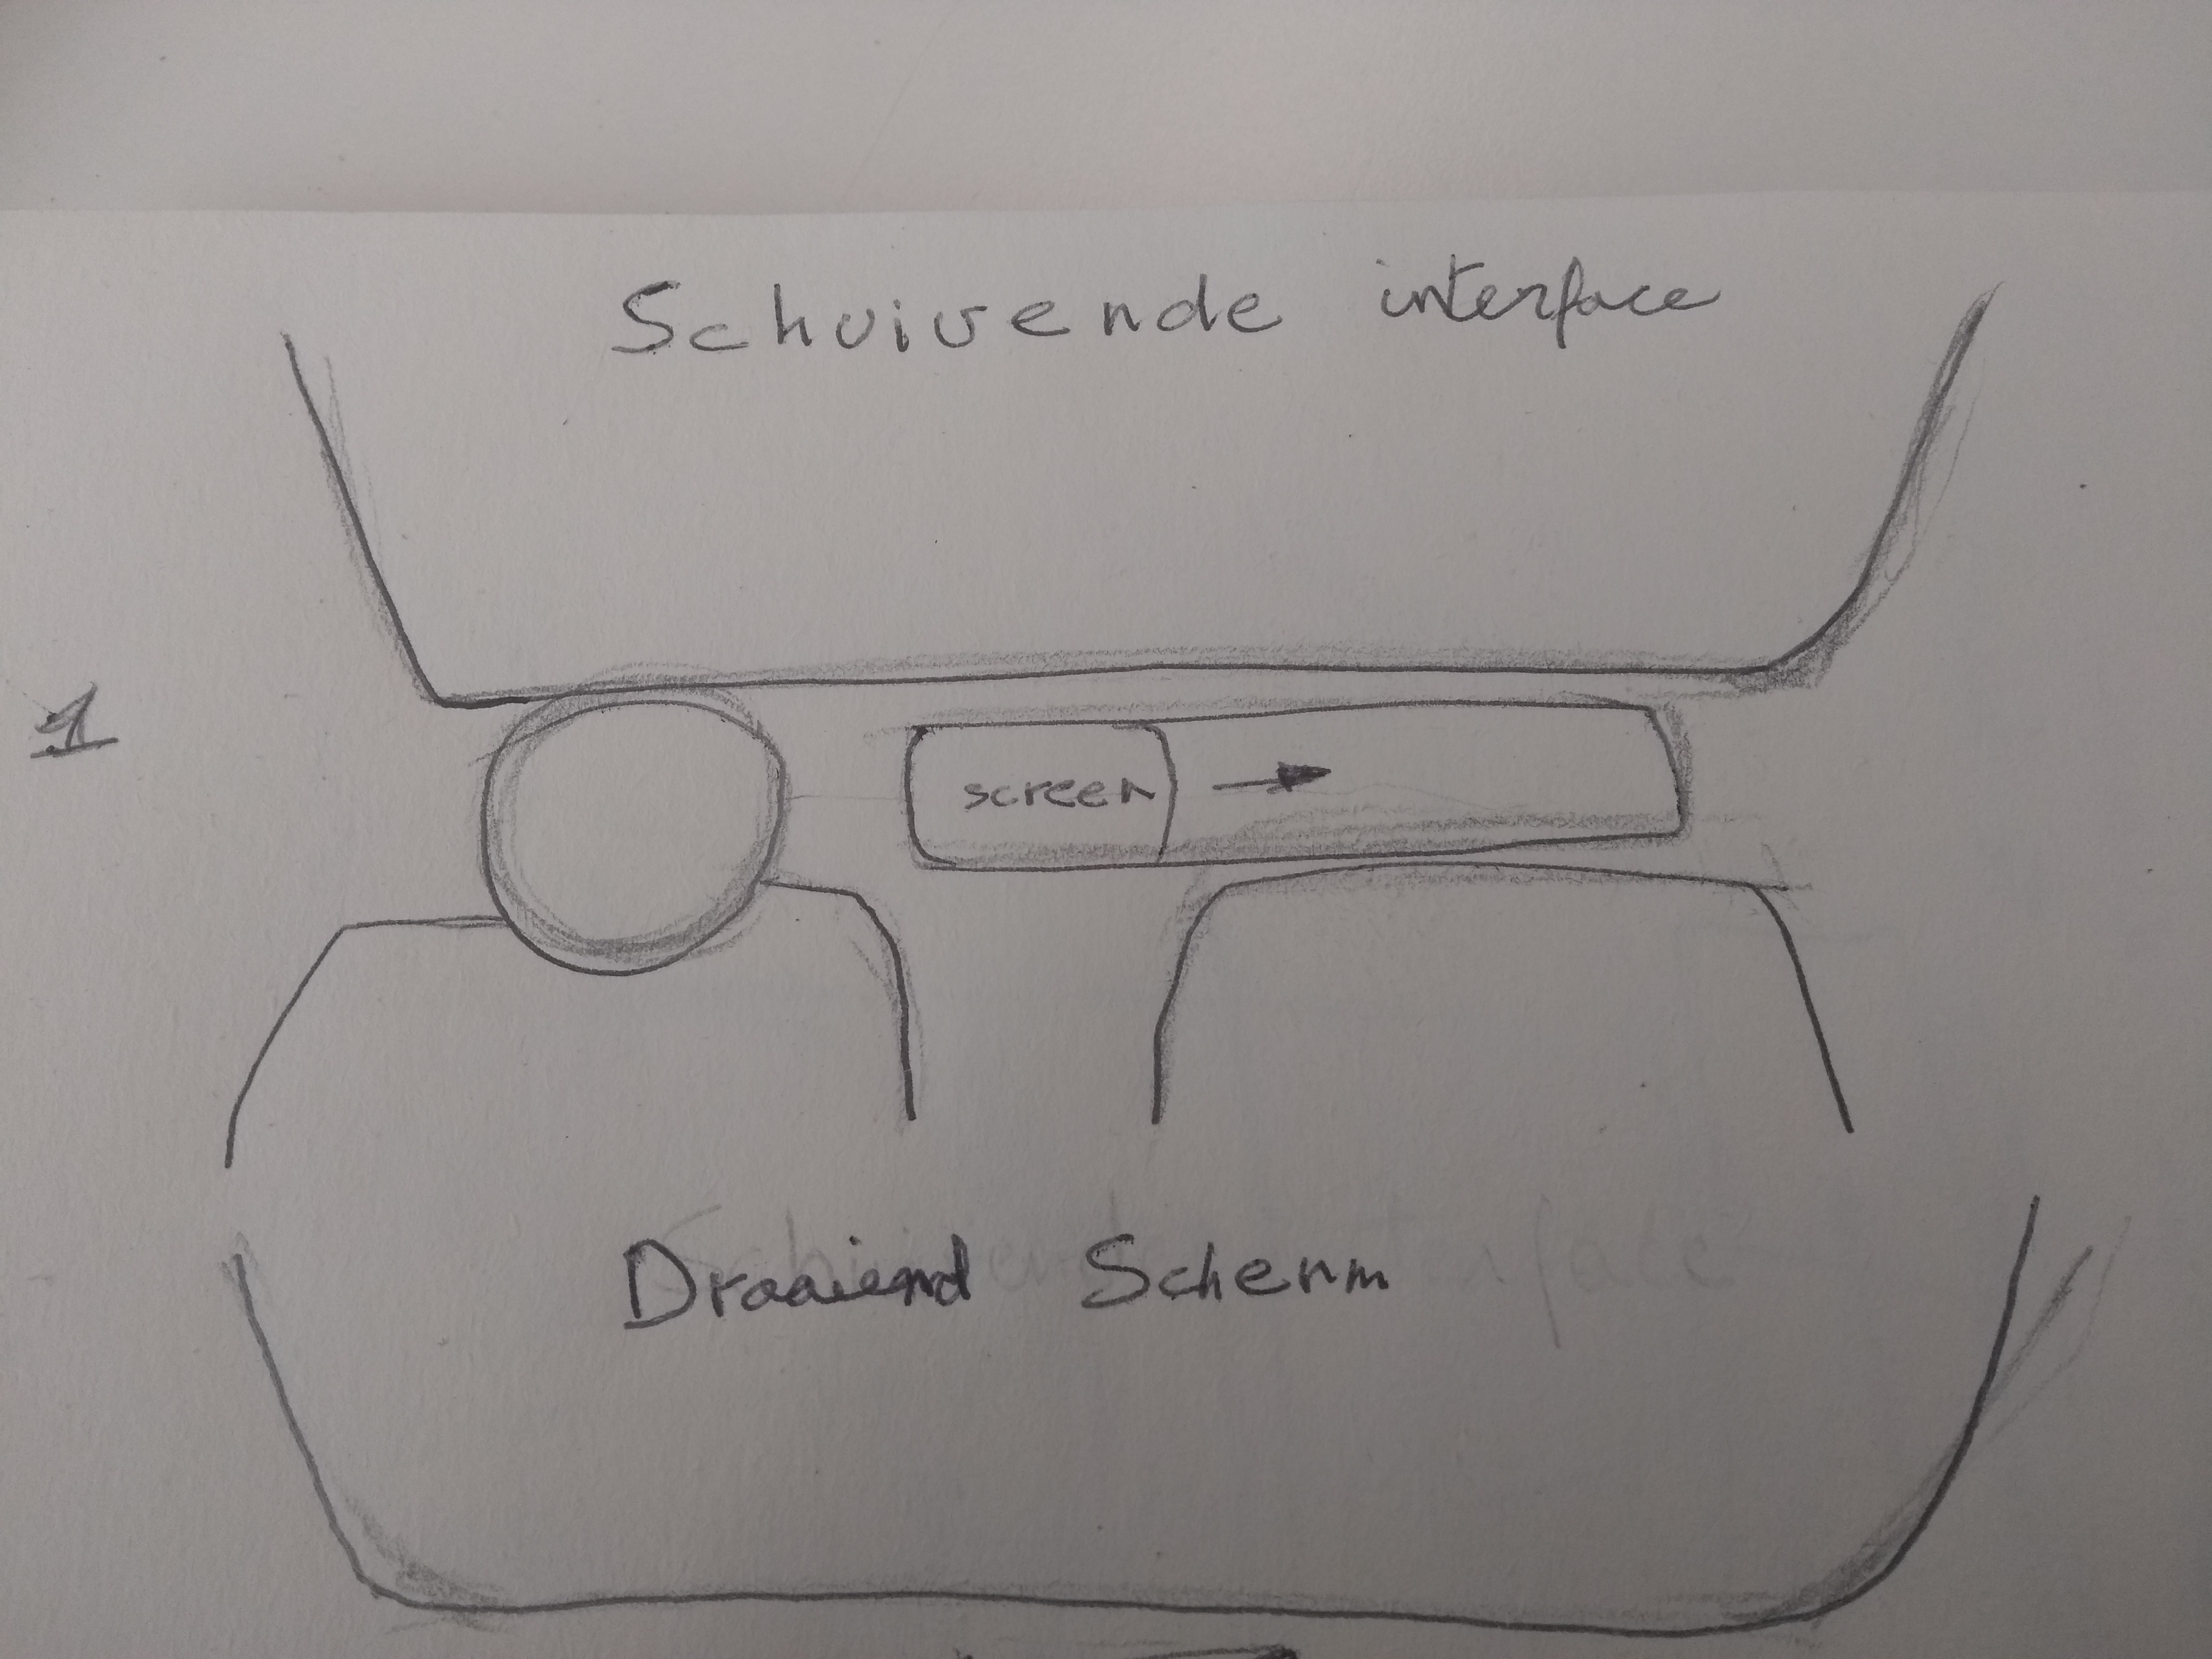 Schuivende interface
1
screen
Draaiend Scherm